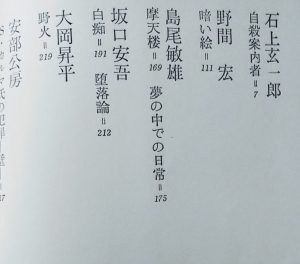 石上玄一郎
自殺案内者=7
野間 宏
暗い絵=111
島尾敏雄
摩天楼=169 夢の中での日常=175
坂口安吾
白痴=191 堕落論=212
大岡昇平
野火=219
安部公房
S・カルマ氏の犯罪